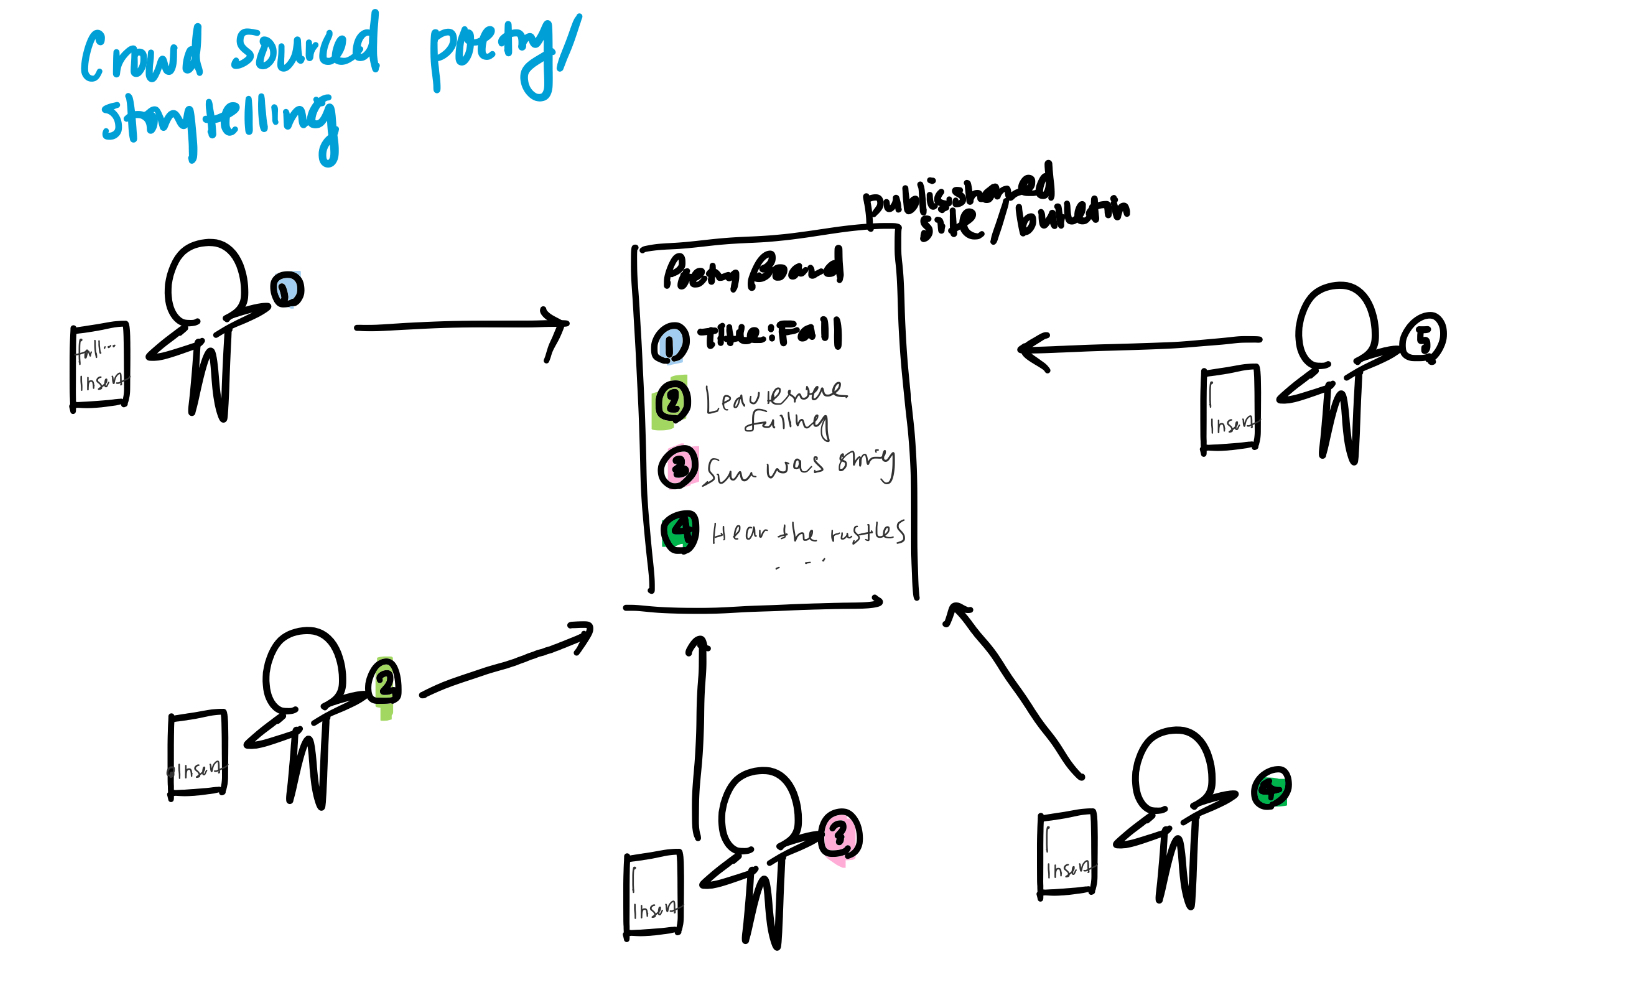 Crowd sourced poetry/
storytelling
public shared
site/bulletin
Poetry Board
1 Title: Fall
2 Leaves were
falling
3 Sun was shining
4 Hear the rustles
.....
1
fall...
Insert
5
Insert
2
Insert
3
Insert
4
Insert